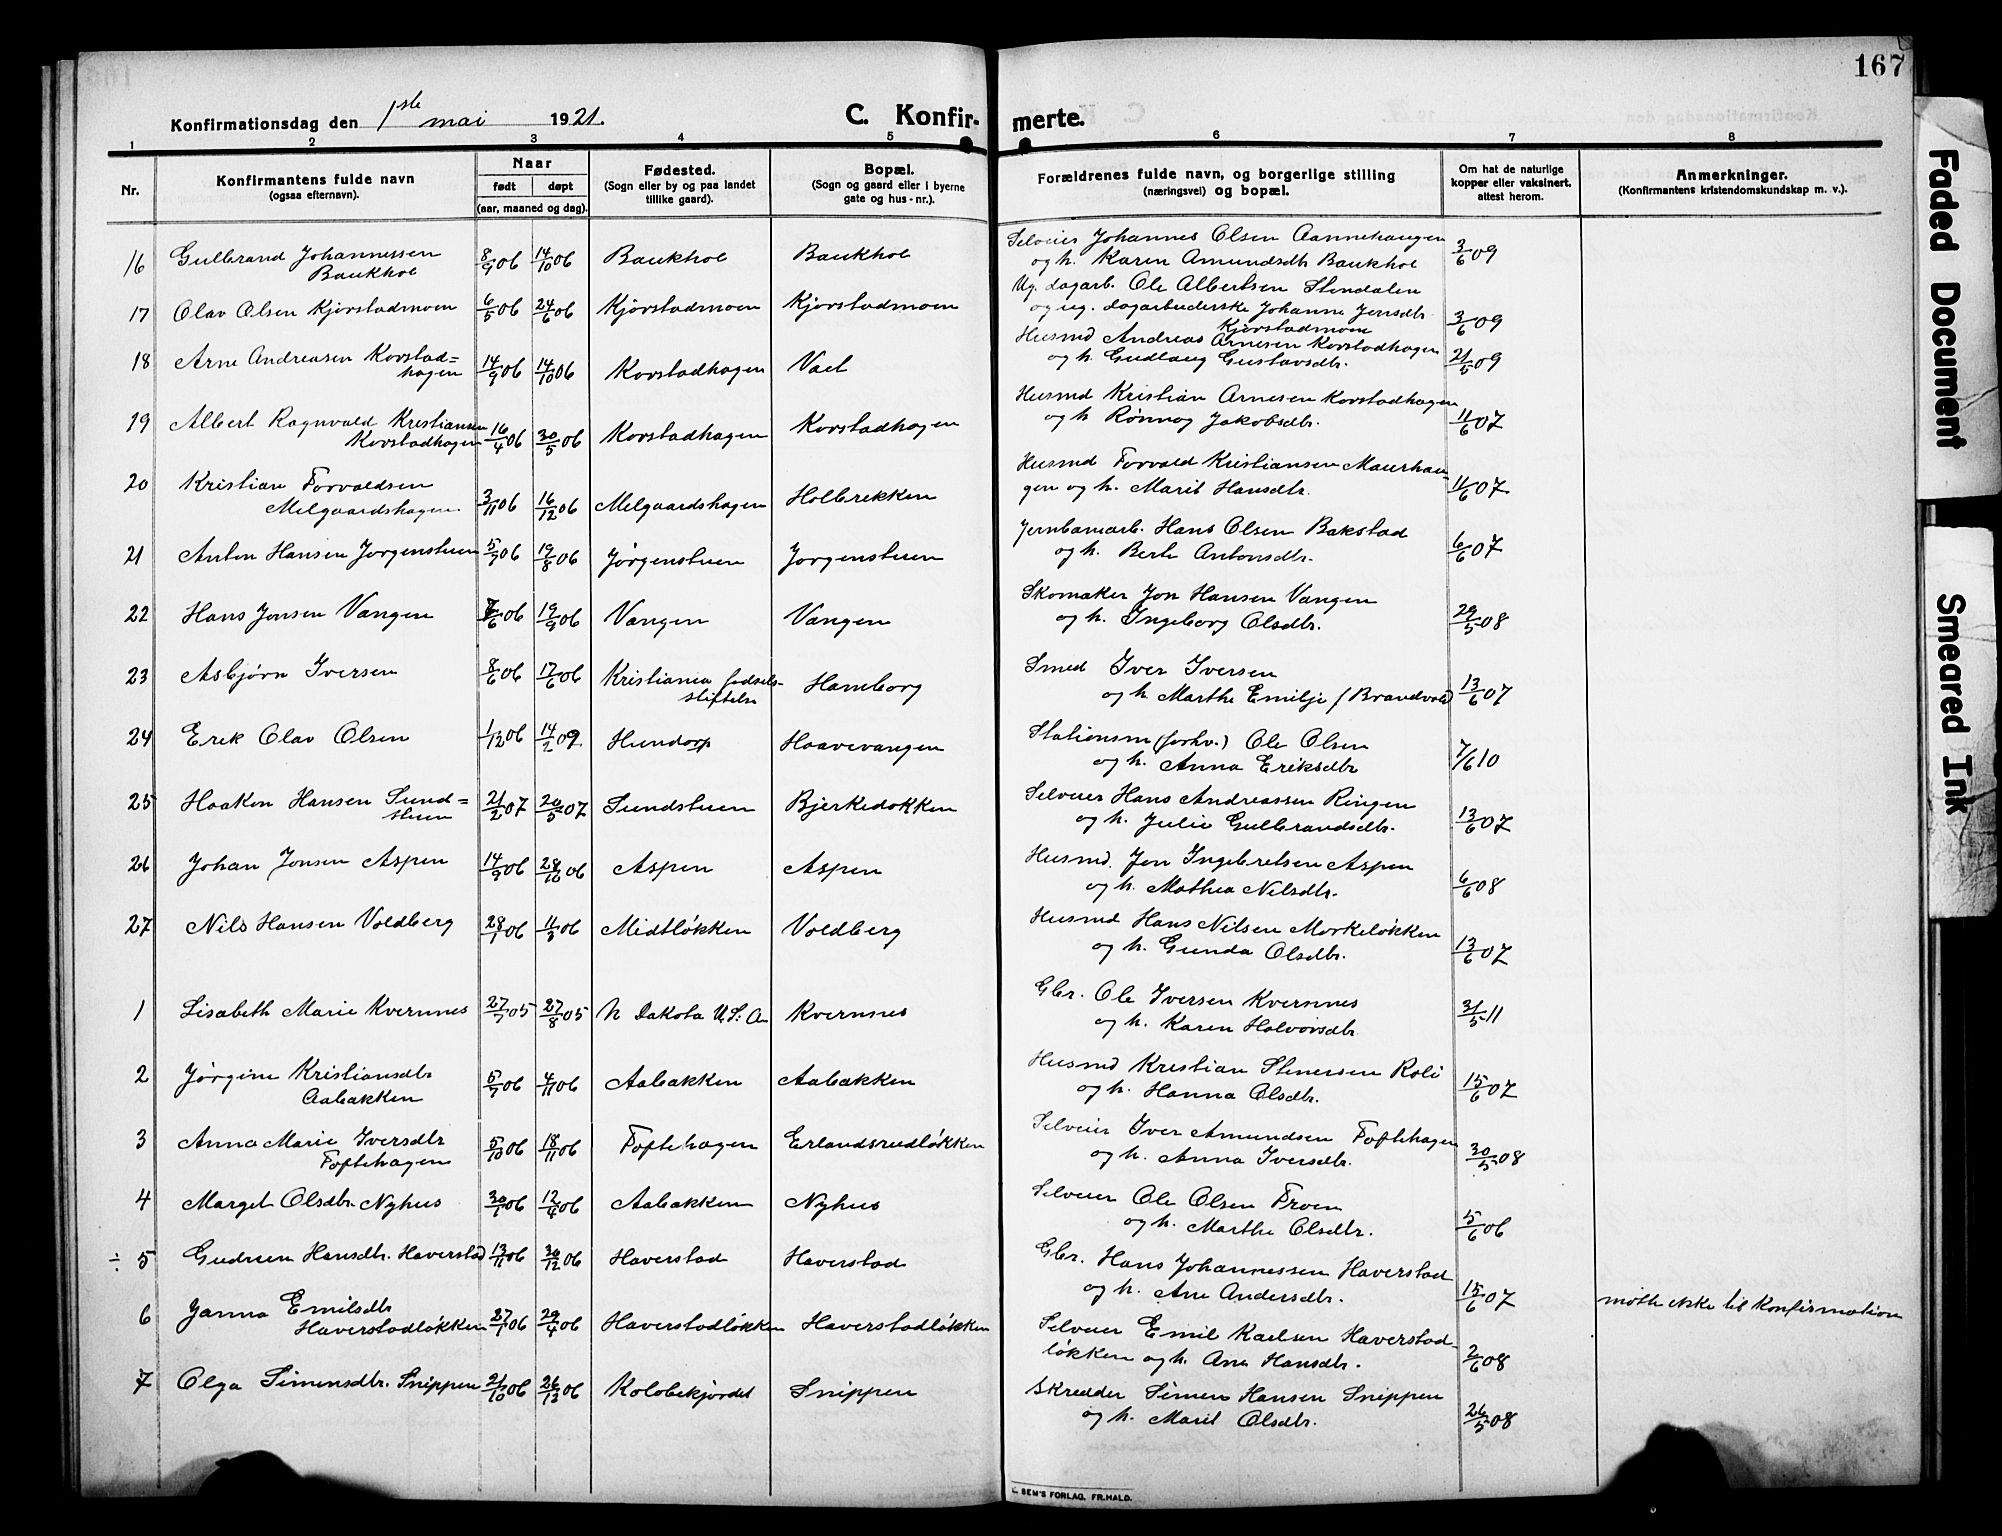 167
Konfirmationsdag den 1ste mai 1921.
C. Konfirmerte.
1 2 3 4 5 6 7 8
Nr.
Konfirmantens fulde navn
(ogsaa efternavn).
Naar
født døpt
(aar, maaned og dag).
Fødested.
(Sogn eller by og paa landet
tillike gaard).
Bopæl.
(Sogn og gaard eller i byerne
gate og hus-nr.).
Forældrenes fulde navn, og borgerlige stilling
(næringsvei) og bopæl.
Om hat de naturlige
kopper eller vaksinert,
attest herom.
Anmerkninger.
(Konfirmantens kristendomskundskap m. v.).
16 Gulbrand Johannessen 8/9 06 14/10 06 Baukhol Baukhol Selveier Johannes Olsen Aannehaugen 3/6 09
Baukhol og h. Karen Amundsdtr Baukhol
17 Olav Olsen Kjørstadmoen 6/5 06 24/6 06 Kjørstadmoen Kjørstadmoen Ug. dagarb. Ole Albertsen Stendalen
og ug. dagarbeiderske Johanne Jensdtr. 3/6 09
Kjørstadmoen
18 Arne Andreasen Korstad= 14/9 06 14/10 06 Korstadhagen Vael Husmd Andreas Arnesen Korstadhagen
hagen og h. Gudlaug Gustavsdtr. 21/5 09
19 Albert Ragnvald Kristiansen 16/4 06 30/5 06 Korstadhagen Korstadhagen Husmd Kristian Arnesen Korstadhagen
Korstadhagen og h Rønnog Jakobsdtr. 11/6 07
20 Kristian Torvaldsen 3/11 06 16/12 06 Melgaardshagen Holbrekken Husmd Torvald Kristiansen Maurhau
Melgaardshagen gen og h. Marit Hansdtr. 11/6 07.
21 Anton Hansen Jørgenstuen 5/7 06 19/8 06 Jørgenstuen Jørgenstuen Jernbanearb. Hans Olsen Bakstad
og h. Berte Antonsdtr. 6/6 07
22 Hans Jonsen Vangen 7/6 06 19/9 06 Vangen Vangen Skomaker Jon Hansen Vangen
og h. Ingeborg Olsdtr. 29/5 08
23 Asbjørn Iversen 8/6 06 17/6 06 Kristiania fødsels- Hameborg Smed Iver Iversen
stiftelse og h Marthe Emilje f Brandvold 13/6 07
24 Erik Olav Olsen 1/12 06 14/2 09 Hundorp Haavevangen Stationsm (forhv.) Ole Olsen
og h. Anna Eriksdtr 7/6 10
25 Haakon Hansen Sund= 21/2 07 20/5 07 Sundstuen Bjerkedokken Selveier Hans Andreassen Ringen
stuen og h. Julie Gulbrandsdtr. 13/6 07
26 Johan Jonsen Aspen 14/9 06 28/10 06 Aspen Aspen Husmd. Jon Ingebretsen Aspen
og h. Mathea Nilsdtr. 6/6 08
27 Nils Hansen Voldberg 28/1 06 11/3 06 Midtløkken Voldberg Husmd Hans Nilsen Mørkeløkken
og h. Gunda Olsdtr. 13/6 07
1 Lisabeth Marie Kvernnes 27/7 05 27/8 05 N Dakota U.S.A Kvernnes Gbr. Ole Iversen Kvernnes
og h. Karen Halvorsdtr. 31/5 11
2 Jørgine Kristiansdtr 5/7 06 4/11 06 Aabakken Aabakken Husmd Kristian Stenersen Roli
Aabakken og h. Hanna Olsdtr. 15/6 07
3 Anna Marie Iversdtr 5/10 06 18/11 06 Toftehagen Erlandsrudløkken Selveier Iver Amundsen Toftehagen
Toftehagen og h. Anna Iversdtr. 30/5 08
4 Margit Olsdtr. Nyhus 30/1 06 12/4 06 Aabakken Nyhus Selveier Ole Olsen Froen
og h. Marthe Olsdtr. 5/6 06
÷ 5 Gudrun Hansdtr. Haverstad 13/11 06 30/12 06 Haverstad Haverstad Gbr. Hans Johannessen Haverstad
og h. Ane Andersdtr. 15/6 07 møtte ikke til konfirmation
6 Janna Emilsdtr 27/1 06 29/4 06 Haverstadløkken Haverstadløkken Selveier Emil Karlsen Haverstad-
Haverstadløkken løkken og h. Ane Hansdtr. 2/6 08
7 Olga Simensdtr. Snippen 21/10 06 26/12 06 Kolobekjordet Snippen Skredder Simen Hansen Snippen
og h. Marit Olsdtr. 26/5 08
SEM'S FORLAG, FR.HALD.
Faded Document
Smeared Ink